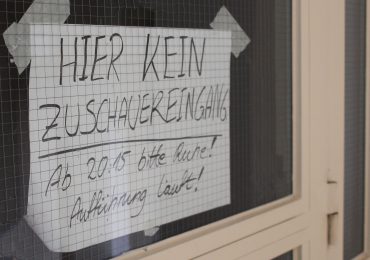 HIER KEIN
ZUSCHAUEREINGANG
Ab 20:15 bitte Ruhe!
Aufführung läuft!